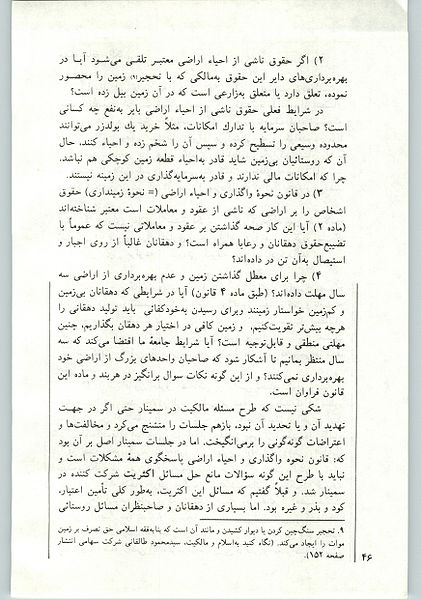 ۲) اگر حقوق ناشی از احیاء اراضی معتبر تلقی می‌شود آیا در
بهره‌برداری‌های دایر این حقوق به‌مالکی که با تحجیر(۹) زمین را محصور
نموده، تعلق دارد یا متعلق به‌زارعی است که در آن زمین بیل زده است؟
در شرایط فعلی حقوق ناشی از احیاء اراضی بایر به‌نفع چه کسانی
است؟ صاحبان سرمایه با تدارك امکانات، مثلاً خرید یك بولدزر می‌توانند
محدوده وسیعی را تسطیح کرده و سپس آن را شخم زده و احیاء کنند، حال
آن که روستائیان بی‌زمین شاید قادر به‌احیاء قطعه زمین کوچکی هم نباشد،
چرا که امکانات مالی ندارند و قادر به‌سرمایه‌گذاری در این زمینه نیستند.
۳) در قانون نحوهٔ واگذاری و احیاء اراضی (= نحوهٔ زمینداری) حقوق
اشخاص را بر اراضی که ناشی از عقود و معاملات است معتبر شناخته‌اند
(ماده ۲) آیا این کار صحه گذاشتن بر عقود و معاملاتی نیست که عموماً با
تضییع‌حقوق دهقانان و رعایا همراه است؟ و دهقانان غالباً از روی اجبار و
استیصال به‌آن تن در داده‌اند؟
۴) چرا برای معطل گذاشتن زمین و عدم بهره‌برداری از اراضی سه
سال مهلت داده‌اند؟ (طبق ماده ۴ قانون) آیا در شرایطی که دهقانان بی‌زمین
و کم‌زمین خواستار زمینند وبرای رسیدن به‌خودکفائی باید تولید دهقانی را
هرچه بیش‌تر تقویت‌کنیم، و زمین کافی در اختیار هر دهقان بگذاریم، چنین
مهلتی منطقی و قابل‌توجیه است؟ آیا شرایط جامعهٔ ما اقتضا می‌کند که سه
سال منتظر بمانیم تا آشکار شود که صاحبان واحدهای بزرگ از اراضی خود
بهره‌برداری نمی‌کنند؟ و از این گونه نکات سوال برانگیز در هربند و ماده این
قانون فراوان است.
شکی نیست که طرح مسئله مالکیت در سمینار حتی اگر در جهت
تهدید آن و یا تحدید آن نبود، بازهم جلسات را متشنج می‌کرد و مخالفت‌ها و
اعتراضات گونه‌گونی را برمی‌انگیخت. اما در جلسات سمینار اصل بر آن بود
که: قانون نحوه واگذاری و احیاء اراضی پاسخگوی همهٔ مشکلات است و
نباید با طرح این گونه سؤالات مانع حل مسائل اکثریت شرکت کننده در
سمینار شد. و قبلاً گفتیم که مسائل این اکثریت، به‌طور کلی تأمین اعتبار،
کود و بذر و غیره بود. اما بسیاری از دهقانان و صاحبنظران مسائل روستائی
۹. تحجیر سنگ‌چین کردن یا دیوار کشیدن و مانند آن است که بنابه‌فقه اسلامی حق تصرف بر زمین
موات را ایجاد می‌کند. (نگاه کنید به‌اسلام و مالکیت، سیدمحمود طالقانی شرکت سهامی انتشار
صفحه ۱۵۲).
۴۶